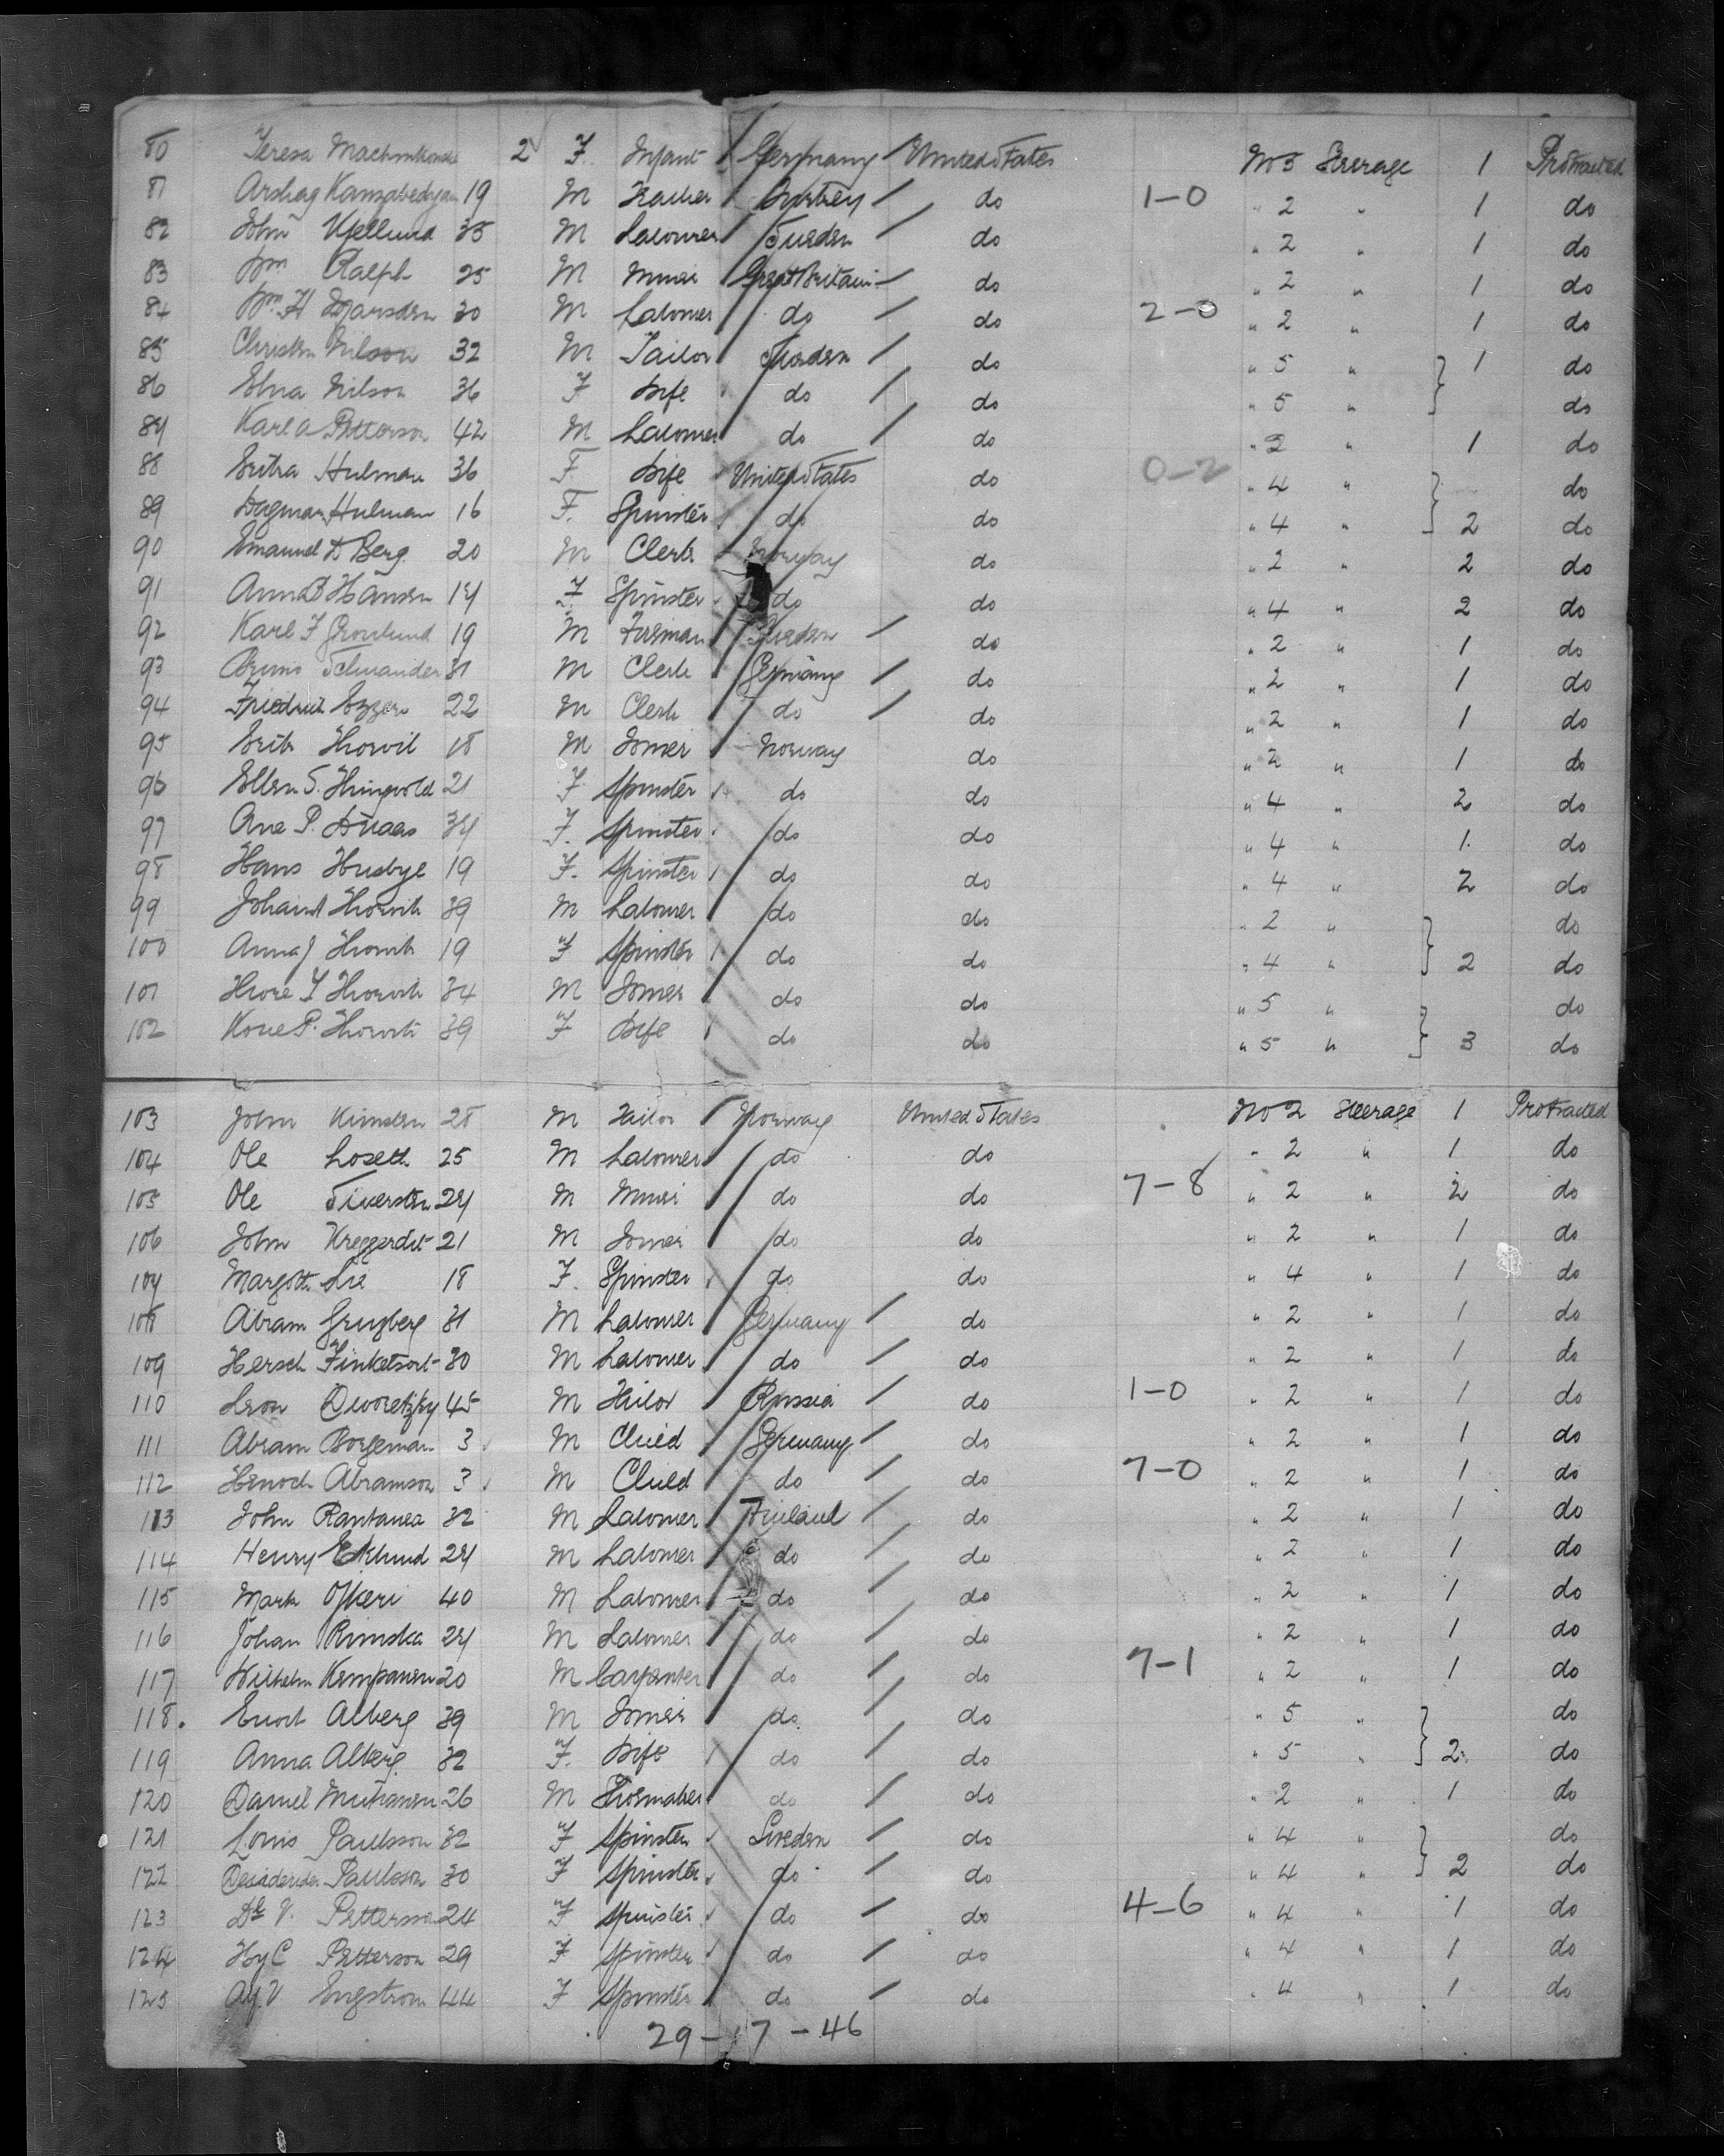 80 Teresa 2 F. Infant Germany United States No 5 Steerage 1 Protracted
81 Arshag 19 M Teacher Turkey do 1-0 " 2 " 1 do
82 John Kjellund 35 M Labourer Sweden do " 2 " 1 do
83 Wm Ralph 25 M Miner Great Britain do " 2 " 1 do
84 Wm H Marsden 30 M Labourer do do 2-0 " 2 " 1 do
85 Christen Nilson 32 M Tailor Sweden do " 5 " 1 do
86 Elna Nilson 36 F Wife do do " 5 " do
87 Karl A Petterson 42 M Labourer do do " 2 " 1 do
88 Hulman 36 F Wife United States do 0-2 " 4 " do
89 Dagmar Hulman 16 F. Spinster do do " 4 " 2 do
90 Emanuel D Berg. 20 M Clerk Norway do " 2 " 2 do
91 Anna B Hansen 17 F Spinster do do " 4 " 2 do
92 Karl F Gronlund 19 M Fireman Sweden do " 2 " 1 do
93 Bruno 31 M Clerk Germany do " 2 " 1 do
94 Friedrich Eggers 22 M Clerk do do " 2 " 1 do
95 Erik 18 M Joiner Norway do " 2 " 1 do
96 Ellen S. 21 F Spinster do do " 4 " 2 do
97 Ane P. 37 F. Spinster do do " 4 " 1 do
98 Hans Husbye 19 F. Spinster do do " 4 " 2 do
99 39 M Labourer do do " 2 " do
100 Anna J 19 F Spinster do do " 4 " 2 do
101 34 M Joiner do do " 5 " do
102 39 F Wife do do " 5 " 3 do
103 John 28 M Tailor Norway United States No 2 Steerage 1 Protracted
104 Ole Loseth 25 M Labourer do do " 2 " 1 do
105 Ole Siversten 27 M Miner do do 7-8 " 2 " 2 do
106 John 21 M Joiner do do " 2 " 1 do
107 Margoth Lie 18 F. Spinster do do " 4 " 1 do
108 Abram Gruzberg 31 M Labourer Germany do " 2 " 1 do
109 Hersch 30 M Labourer do do " 2 " 1 do
110 Leon Dworetzky 45 M Tailor Russia do 1-0 " 2 " 1 do
111 Abram Borgeman 3 M Child Germany do " 2 " 1 do
112 Henoch Abramson 3 M Child do do 7-0 " 2 " 1 do
113 John Rantanen 32 M Labourer Finland do " 2 " 1 do
114 Henry Eklund 27 M Labourer do do " 2 " 1 do
115 Mark 40 M Labourer do do " 2 " 1 do
116 Johan Rimska 27 M Labourer do do " 2 " 1 do
117 Wilhelm Kempanen 20 M Carpenter do do 7-1 " 2 " 1 do
118. Alberg 39 M Joiner do do " 5 " do
119 Anna Alberg 32 F. Wife do do " 5 " 2 do
120 Daniel 26 M Shoemaker do do " 2 " 1 do
121 Louis Paulsson 32 F Spinster Sweden do " 4 " do
122 Paulsson 30 F Spinster do do " 4 " 2 do
123 V. Petterson 24 F Spinster do do 4-6 " 4 " 1 do
124 Hy C Petterson 29 F Spinster do do " 4 " 1 do
125 V. Engstrom 44 F Spinster do do " 4 " 1 do
29-17-46